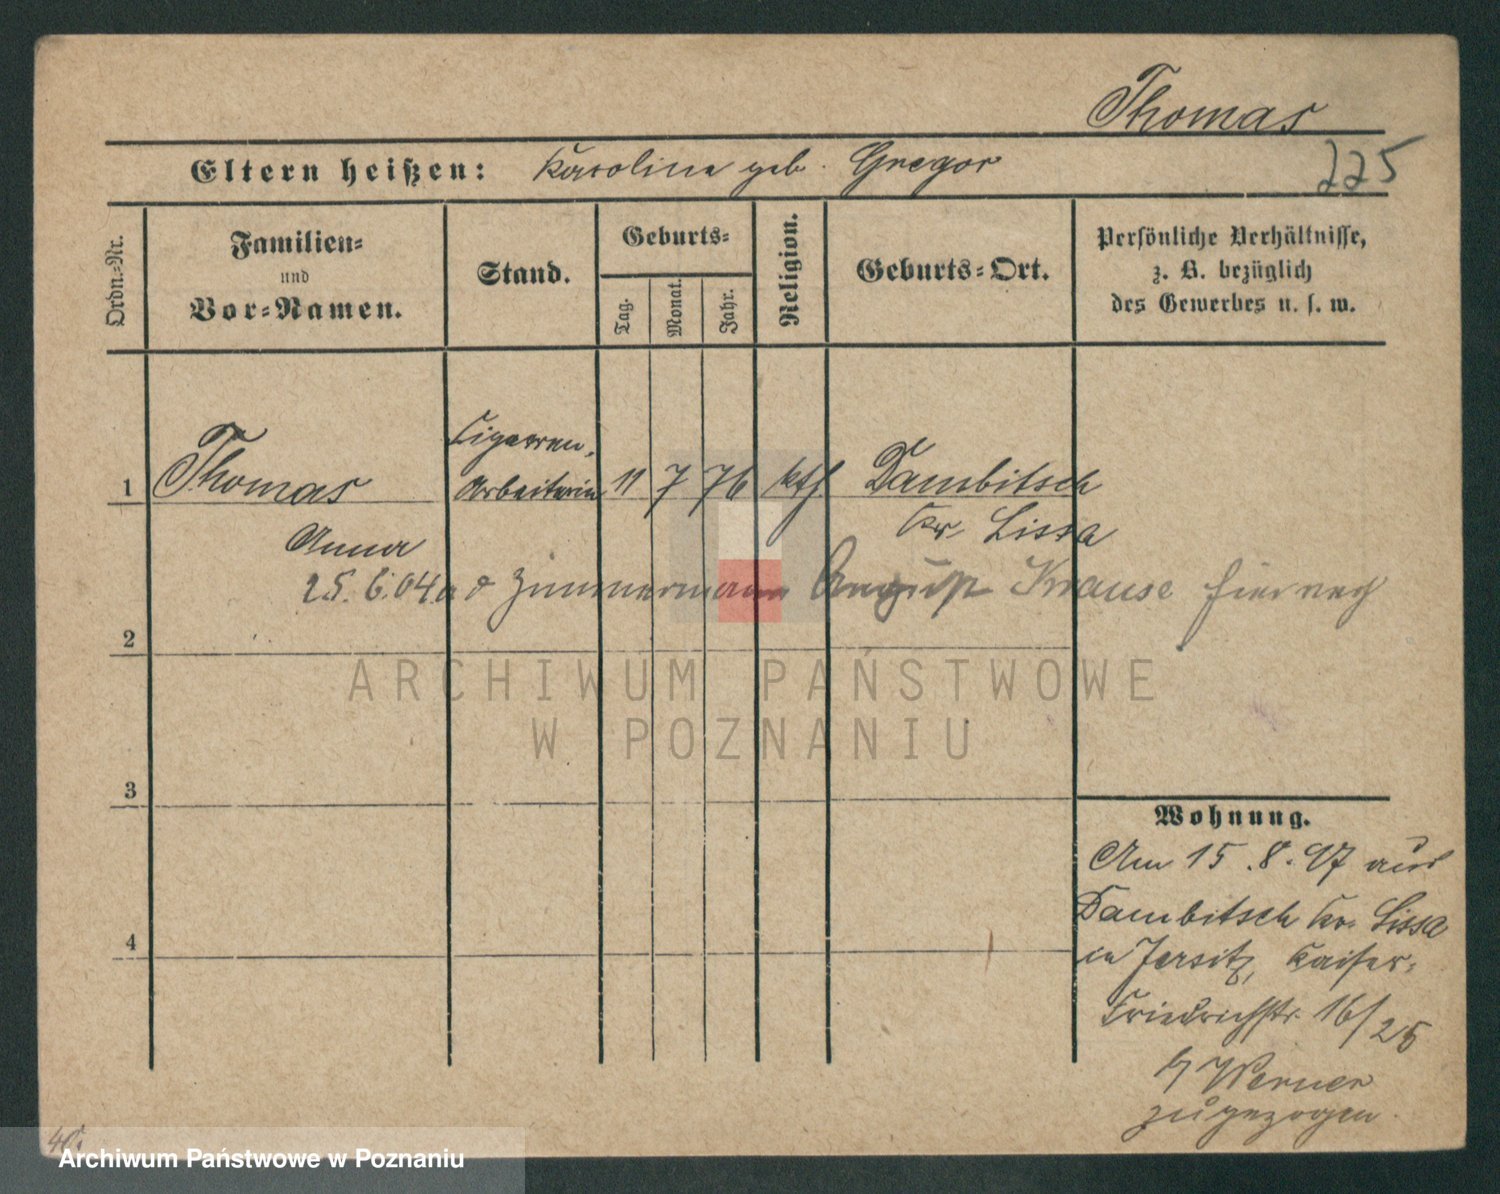 Thomas
Eltern heißen: Karolina geb. Gregor
225
Ordn.-Nr.
Familien- und Vor-Namen.
Stand.
Geburts-
Tag. Monat. Jahr.
Religion.
Geburts-Ort.
Persönliche Verhältnisse,
z. B. bezüglich
des Gewerbes u. s. w.
1 Thomas Cigarren- Arbeiterin 11 7 76 kth Dambitsch
Anna Kr. Lissa
25.6.04 Zimmermann August Krause
2
ARCHIWUM PAŃSTWOWE
W POZNANIU
3
4
Wohnung.
Am 15.8.97 aus
Dambitsch Kr. Lissa
in Jersitz, Kaiser-
Friedrichstr. 16/25
b/ Werner
zugezogen.
Archiwum Państwowe w Poznaniu